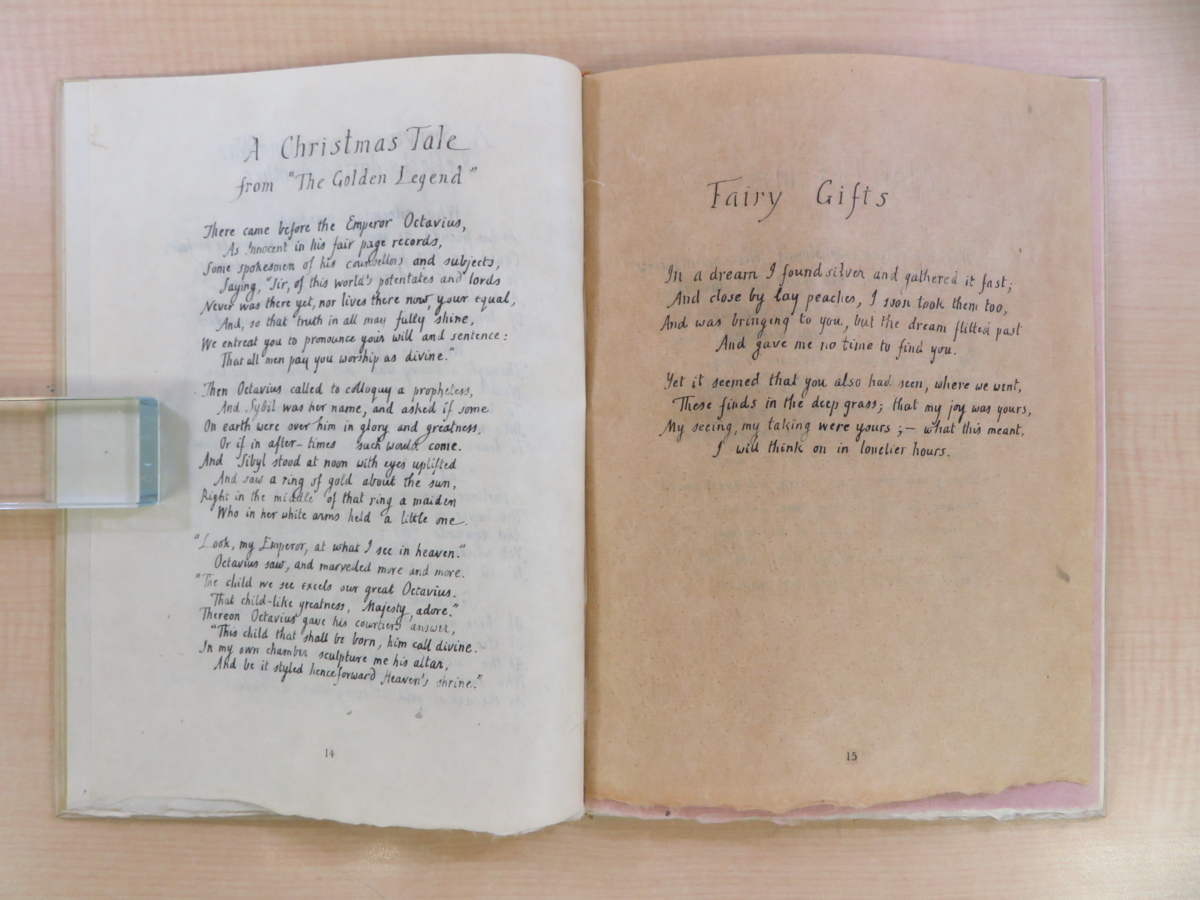 A Christmas Tale
from "The Golden Legend"
There came before the Emperor Octavius,
As Innocent in his fair page records,
Some spokesmen of his counsellors and subjects,
Saying, "Sir, of this world's potentates and lords
Never was there yet, nor lives there now, your equal,
And, so that truth in all may fully shine,
We entreat you to pronounce your will and sentence:
That all men pay you worship as divine."
Then Octavius called to colloquy a prophetess,
And Sybil was her name, and asked if some
On earth were over him in glory and greatness,
Or if in after-times such would come.
And Sibyl stood at noon with eyes uplifted
And saw a ring of gold about the sun,
Right in the middle of that ring a maiden
Who in her white arms held a little one.
"Look, my Emperor, at what I see in heaven."
Octavius saw, and marvelled more and more.
"The child we see excels our great Octavius.
That child-like greatness, Majesty, adore."
Thereon Octavius gave his courtiers answer,
"This child that shall be born, him call divine.
In my own chamber sculpture me his altar,
And be it styled henceforward Heaven's shrine."
14
Fairy Gifts
In a dream I found silver and gathered it fast;
And close by lay peaches, I soon took them too,
And was bringing to you, but the dream flitted past
And gave me no time to find you.
Yet it seemed that you also had seen, where we went,
These finds in the deep grass; that my joy was yours,
My seeing, my taking were yours;— what this meant,
I will think on in lonelier hours.
15